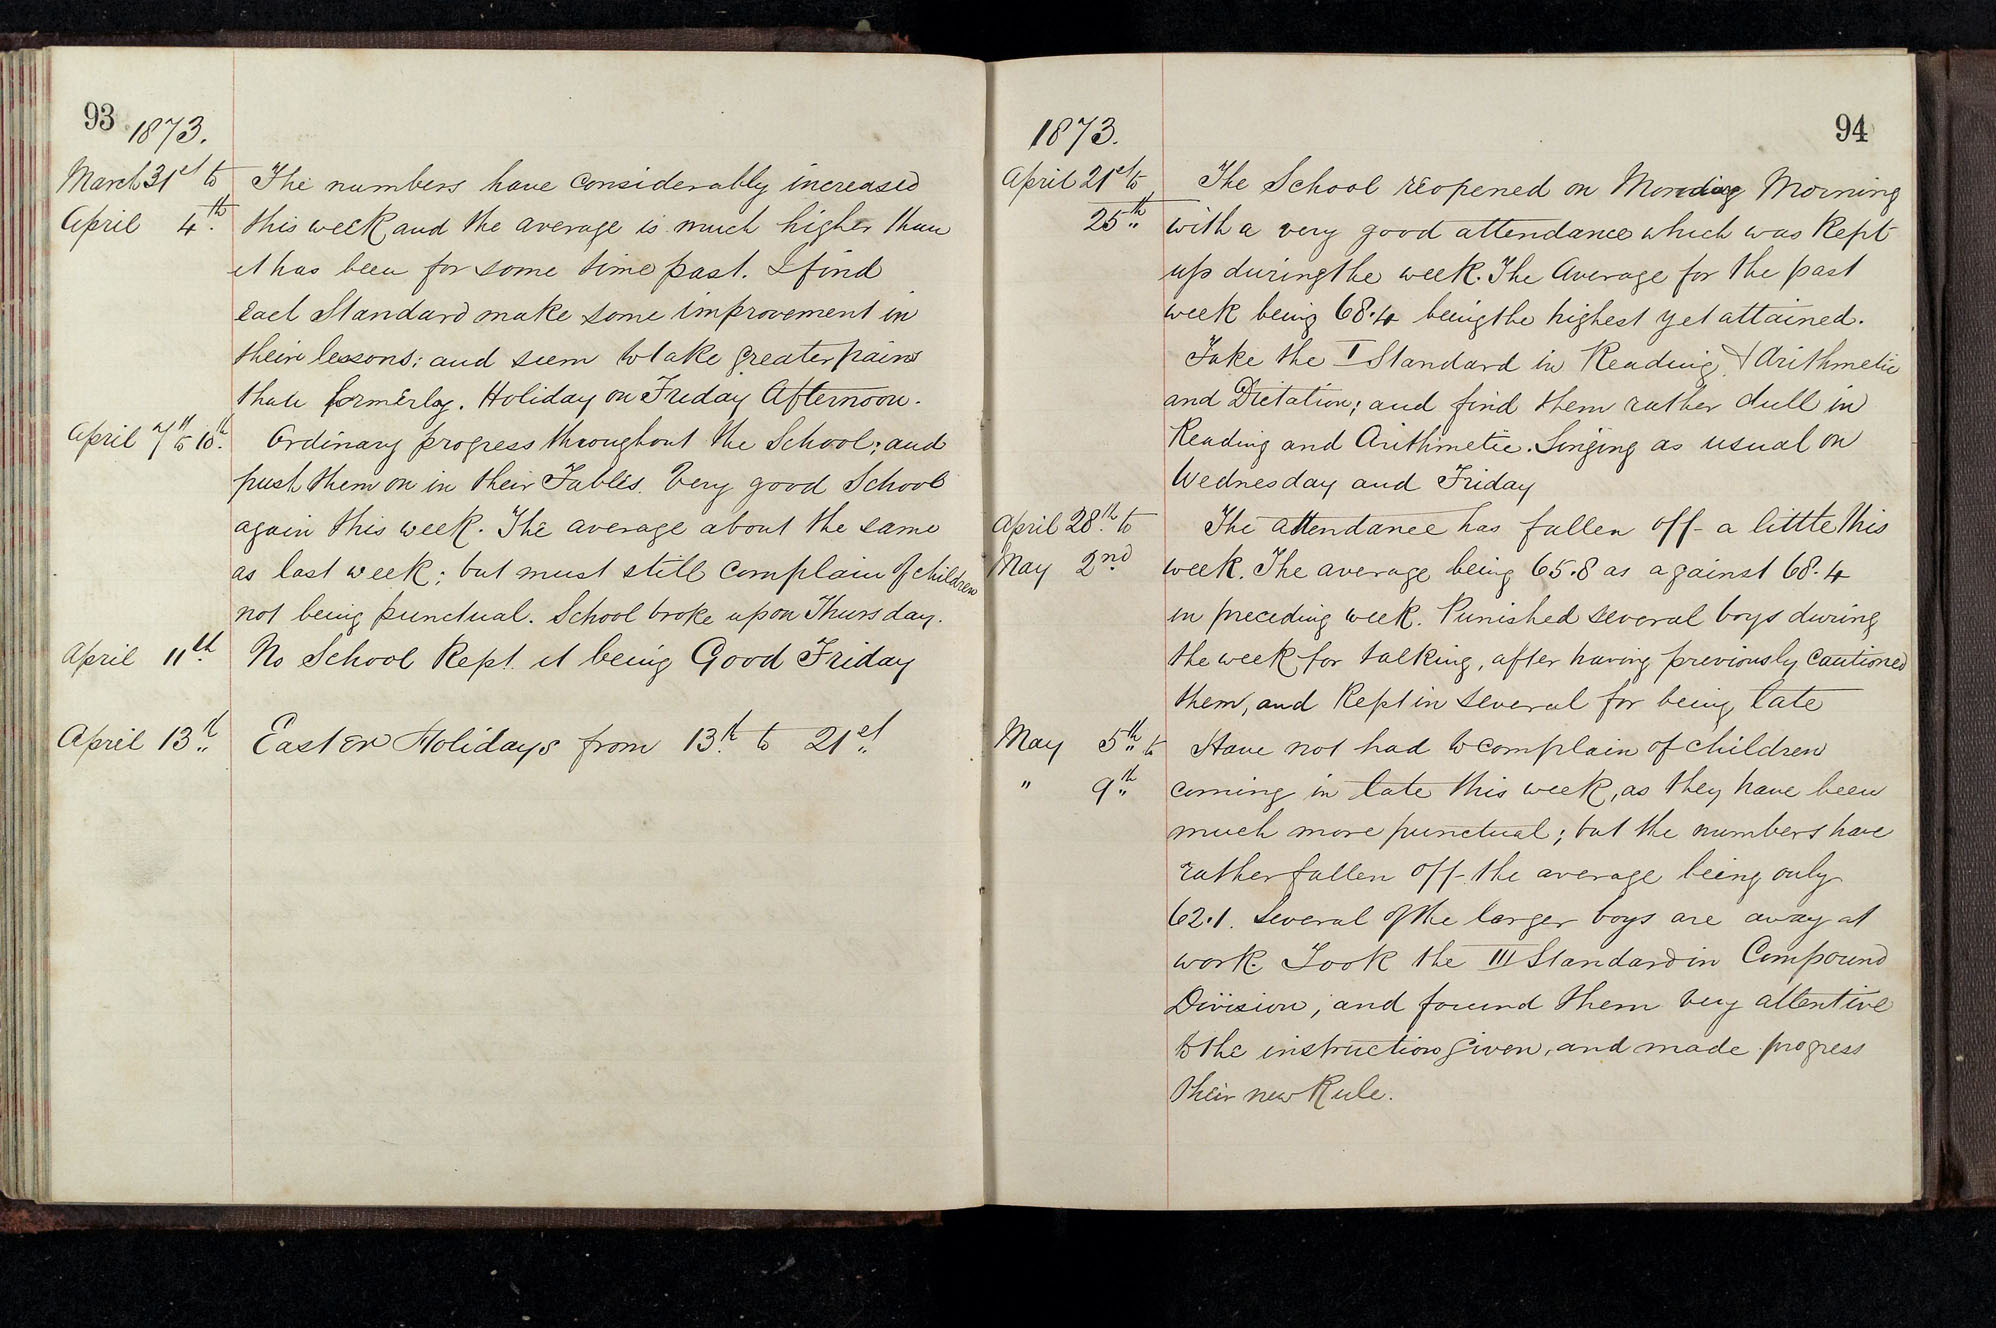 93
1873.
March 31st to The numbers have considerably increased
April 4th. this week and the average is much higher than
it has been for some time past. I find
each Standard make some improvement in
their lessons; and seem to take greater pains
than formerly. Holiday on Friday Afternoon.
April 7th to 10th. Ordinary progress throughout the School; and
push them on in their Tables. Very good School
again this week. The average about the same
as last week; but must still complain of children
not being punctual. School broke up on Thursday.
April 11th. No School Kept it being Good Friday
April 13th.. Easter Holidays from 13th. to 21st..
94
1873.
April 21st to The School reopened on Monday Morning
25th.. with a very good attendance which was Kept
up during the week. The Average for the past
week being 68.4 being the highest yet attained.
Take the I Standard in Reading, & Arithmetic
and Dictation; and find them rather dull in
Reading and Arithmetic. Singing as usual on
Wednesday and Friday
April 28th. to The attendance has fallen off a little this
May 2nd. week. The average being 65.8 as against 68.4
in preceding week. Punished several boys during
the week for talking, after having previously cautioned
them, and Kept in several for being late
May 5th.. to Have not had to complain of children
" 9th.. coming in late this week, as they have been
much more punctual; but the numbers have
rather fallen off the average being only
62.1. Several of the larger boys are away at
work. Took the III Standard in Compound
Division; and found them very attentive
to the instruction given, and made progress
their new Rule.